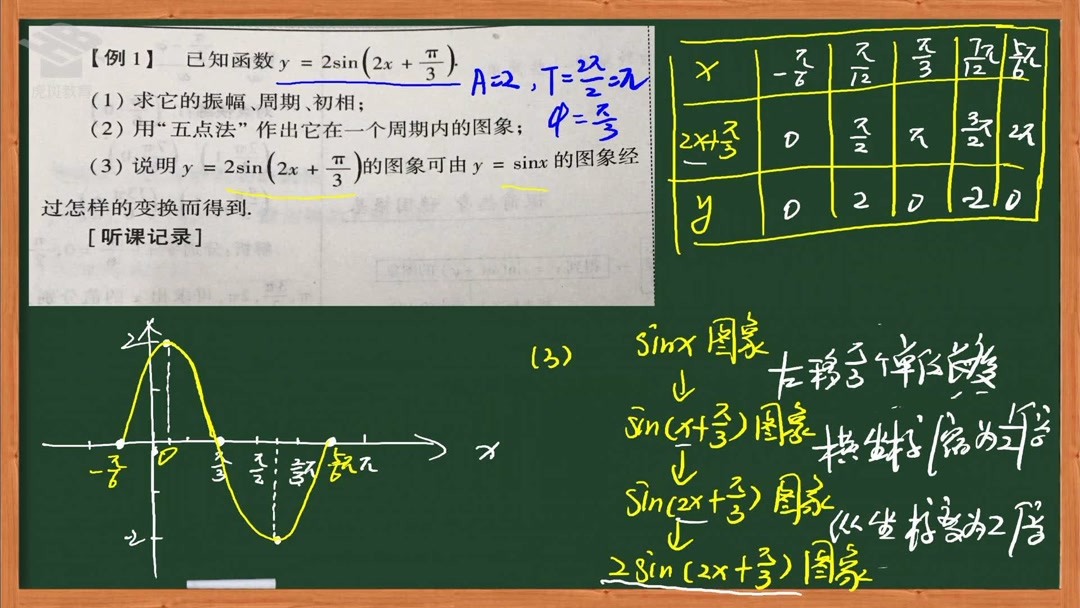 【例1】 已知函数 y = 2sin(2x + π/3).
(1) 求它的振幅、周期、初相;
(2) 用“五点法”作出它在一个周期内的图象;
(3) 说明 y = 2sin(2x + π/3)的图象可由 y = sinx 的图象经
过怎样的变换而得到.
[听课记录]
A=2, T=2π/2=π
φ=π/3
x -π/6 π/12 π/3 7/12π 5/6π
2x+π/3 0 π/2 π 3/2π 2π
y 0 2 0 -2 0
2
-π/6 0 π/3 π/2 2/3π 5/6π π x
-2
(3)
sinx 图象
左移π/3个单位长度
↓
sin(x+π/3)图象
横坐标缩为1/2倍
↓
sin(2x+π/3)图象
纵坐标变为2倍
↓
2sin(2x+π/3)图象